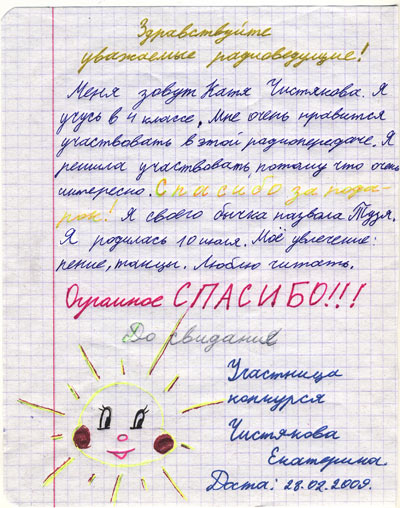 Здравствуйте
уважаемые радиоведущие!
Меня зовут Катя Чистякова. Я
учусь в 4 классе. Мне очень нравится
участвовать в этой радиопередаче. Я
решила участвовать, потому что очень
интересно. Спасибо за пода-
рок! Я своего бычка назвала Тузя.
Я родилась 10 июля. Моё увлечение:
пение, танцы. Люблю читать.
Огромное СПАСИБО!!!
До свидания
Участница
конкурся
Чистякова
Екатерина.
Дата: 28.02.2009.